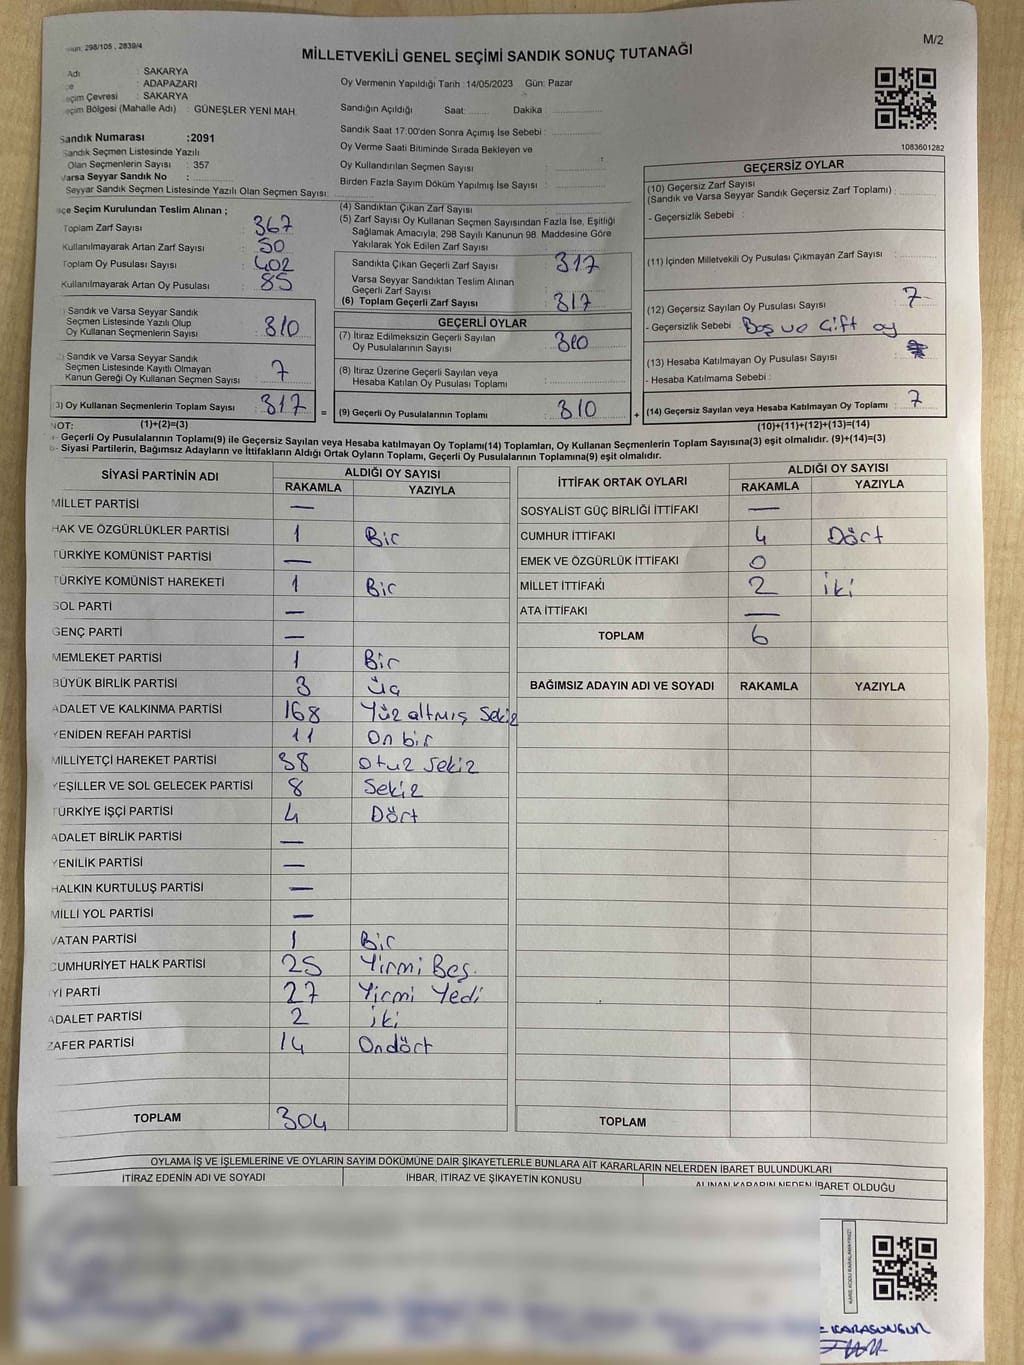 298/105 , 2839/4
M/2
MİLLETVEKİLİ GENEL SEÇİMİ SANDIK SONUÇ TUTANAĞI
Adı : SAKARYA
: ADAPAZARI
Seçim Çevresi : SAKARYA
Seçim Bölgesi (Mahalle Adı) : GÜNEŞLER YENİ MAH.
Sandık Numarası :2091
Sandık Seçmen Listesinde Yazılı
Olan Seçmenlerin Sayısı : 357
Varsa Seyyar Sandık No :
Seyyar Sandık Seçmen Listesinde Yazılı Olan Seçmen Sayısı:
Oy Vermenin Yapıldığı Tarih :14/05/2023 Gün: Pazar
Sandığın Açıldığı Saat: Dakika :
Sandık Saat 17:00'den Sonra Açımış İse Sebebi :
Oy Verme Saati Bitiminde Sırada Bekleyen ve
Oy Kullandırılan Seçmen Sayısı :
Birden Fazla Sayım Döküm Yapılmış İse Sayısı :
1083601282
İlçe Seçim Kurulundan Teslim Alınan ;
Toplam Zarf Sayısı : 367
Kullanılmayarak Artan Zarf Sayısı : 50
Toplam Oy Pusulası Sayısı : 402
Kullanılmayarak Artan Oy Pusulası : 85
Sandık ve Varsa Seyyar Sandık
Seçmen Listesinde Yazılı Olup
Oy Kullanan Seçmenlerin Sayısı : 310
Sandık ve Varsa Seyyar Sandık
Seçmen Listesinde Kayıtlı Olmayan
Kanun Gereği Oy Kullanan Seçmen Sayısı : 7
3) Oy Kullanan Seçmenlerin Toplam Sayısı : 317
(1)+(2)=(3)
(4) Sandıktan Çıkan Zarf Sayısı :
(5) Zarf Sayısı Oy Kullanan Seçmen Sayısından Fazla İse, Eşitliği
Sağlamak Amacıyla; 298 Sayılı Kanunun 98. Maddesine Göre
Yakılarak Yok Edilen Zarf Sayısı :
Sandıkta Çıkan Geçerli Zarf Sayısı : 317
Varsa Seyyar Sandıktan Teslim Alınan
Geçerli Zarf Sayısı :
(6) Toplam Geçerli Zarf Sayısı : 317
GEÇERLİ OYLAR
(7) İtiraz Edilmeksizin Geçerli Sayılan
Oy Pusulalarının Sayısı : 310
(8) İtiraz Üzerine Geçerli Sayılan veya
Hesaba Katılan Oy Pusulası Toplamı :
= (9) Geçerli Oy Pusulalarının Toplamı : 310 +
GEÇERSİZ OYLAR
(10) Geçersiz Zarf Sayısı
(Sandık ve Varsa Seyyar Sandık Geçersiz Zarf Toplamı) :
- Geçersizlik Sebebi :
(11) İçinden Milletvekili Oy Pusulası Çıkmayan Zarf Sayısı :
(12) Geçersiz Sayılan Oy Pusulası Sayısı : 7
- Geçersizlik Sebebi : Boş ve Çift oy
(13) Hesaba Katılmayan Oy Pusulası Sayısı :
- Hesaba Katılmama Sebebi :
(14) Geçersiz Sayılan veya Hesaba Katılmayan Oy Toplamı : 7
(10)+(11)+(12)+(13)=(14)
NOT:
a- Geçerli Oy Pusulalarının Toplamı(9) ile Geçersiz Sayılan veya Hesaba katılmayan Oy Toplamı(14) Toplamları, Oy Kullanan Seçmenlerin Toplam Sayısına(3) eşit olmalıdır. (9)+(14)=(3)
b- Siyasi Partilerin, Bağımsız Adayların ve İttifakların Aldığı Ortak Oyların Toplamı, Geçerli Oy Pusulalarının Toplamına(9) eşit olmalıdır.
SİYASİ PARTİNİN ADI ALDIĞI OY SAYISI
RAKAMLA YAZIYLA
MİLLET PARTİSİ —
HAK VE ÖZGÜRLÜKLER PARTİSİ 1 Bir
TÜRKİYE KOMÜNİST PARTİSİ —
TÜRKİYE KOMÜNİST HAREKETİ 1 Bir
SOL PARTİ —
GENÇ PARTİ —
MEMLEKET PARTİSİ 1 Bir
BÜYÜK BİRLİK PARTİSİ 3 üç
ADALET VE KALKINMA PARTİSİ 168 Yüz altmış Sekiz
YENİDEN REFAH PARTİSİ 11 On bir
MİLLİYETÇİ HAREKET PARTİSİ 38 otuz sekiz
YEŞİLLER VE SOL GELECEK PARTİSİ 8 Sekiz
TÜRKİYE İŞÇİ PARTİSİ 4 Dört
ADALET BİRLİK PARTİSİ —
YENİLİK PARTİSİ —
HALKIN KURTULUŞ PARTİSİ —
MİLLİ YOL PARTİSİ —
VATAN PARTİSİ 1 Bir
CUMHURİYET HALK PARTİSİ 25 Yirmi Beş.
İYİ PARTİ 27 Yirmi Yedi
ADALET PARTİSİ 2 iki
ZAFER PARTİSİ 14 Ondört
TOPLAM 304
İTTİFAK ORTAK OYLARI ALDIĞI OY SAYISI
RAKAMLA YAZIYLA
SOSYALİST GÜÇ BİRLİĞİ İTTİFAKI —
CUMHUR İTTİFAKI 4 Dört
EMEK VE ÖZGÜRLÜK İTTİFAKI 0
MİLLET İTTİFAKI 2 iki
ATA İTTİFAKI —
TOPLAM 6
BAĞIMSIZ ADAYIN ADI VE SOYADI RAKAMLA YAZIYLA
TOPLAM
OYLAMA İŞ VE İŞLEMLERİNE VE OYLARIN SAYIM DÖKÜMÜNE DAİR ŞİKAYETLERLE BUNLARA AİT KARARLARIN NELERDEN İBARET BULUNDUKLARI
İTİRAZ EDENİN ADI VE SOYADI İHBAR, İTİRAZ VE ŞİKAYETİN KONUSU ALINAN KARARIN NEDEN İBARET OLDUĞU
KARE KODU KARALAMAYINIZ!
KARASUNGUR